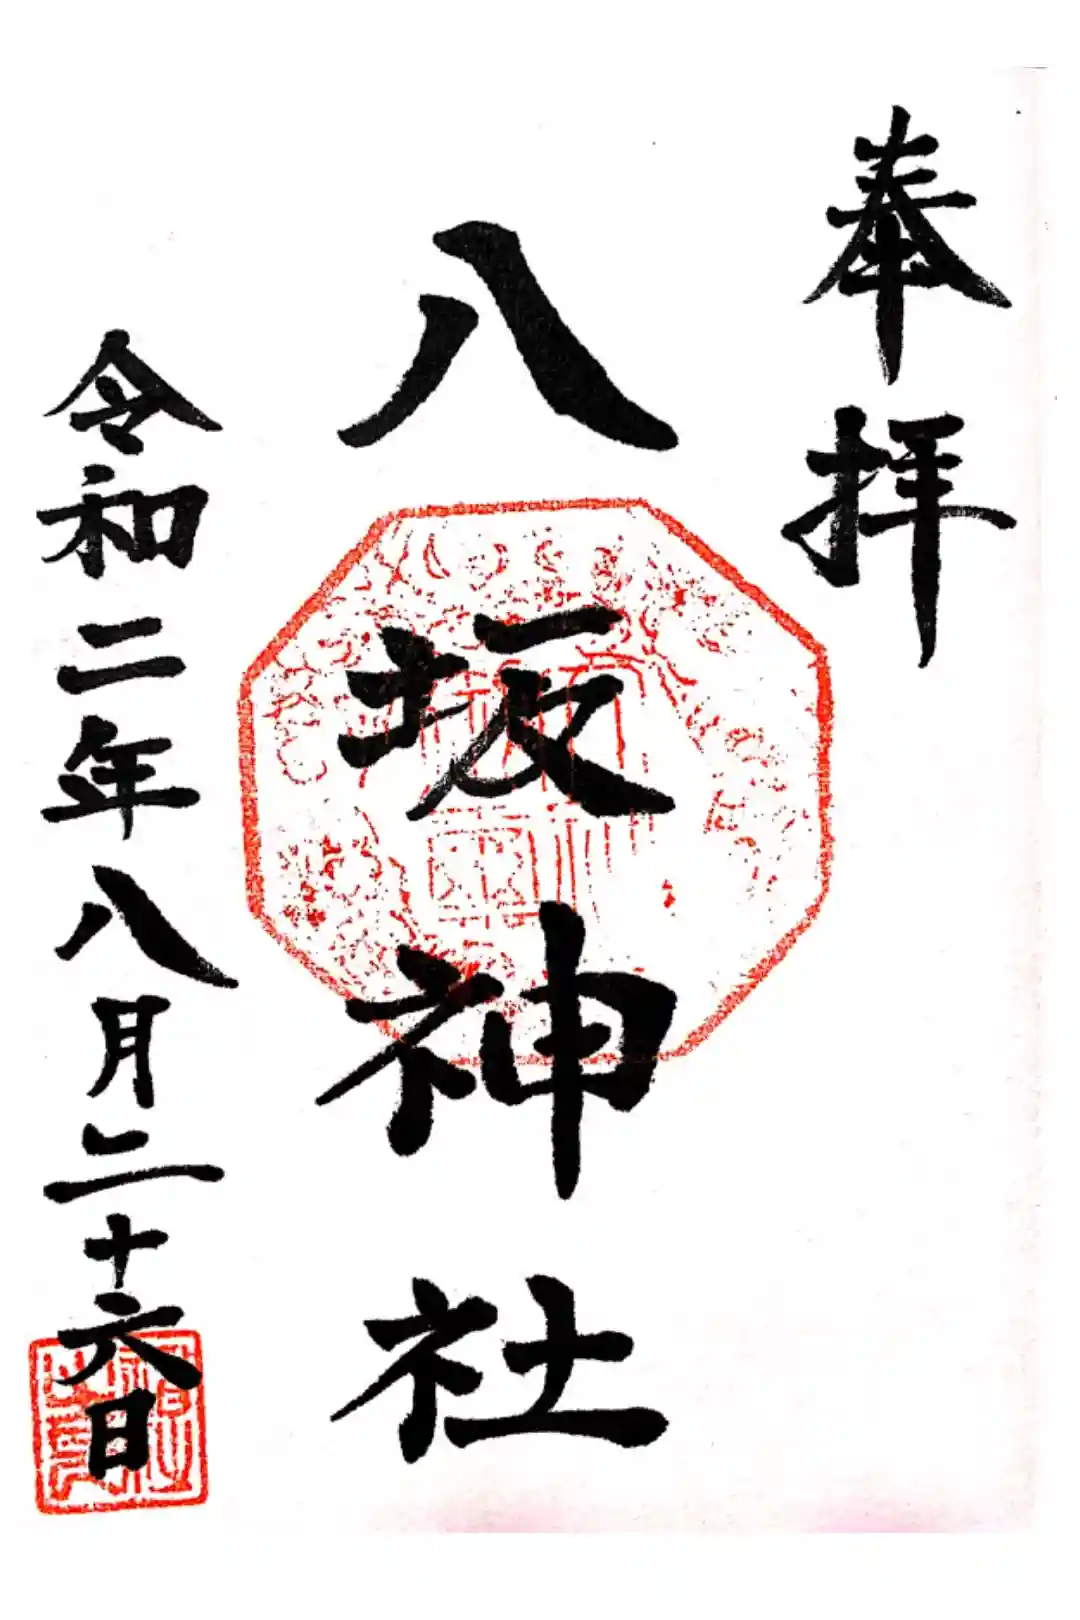 奉拝
八坂神社
令和二年八月二十六日